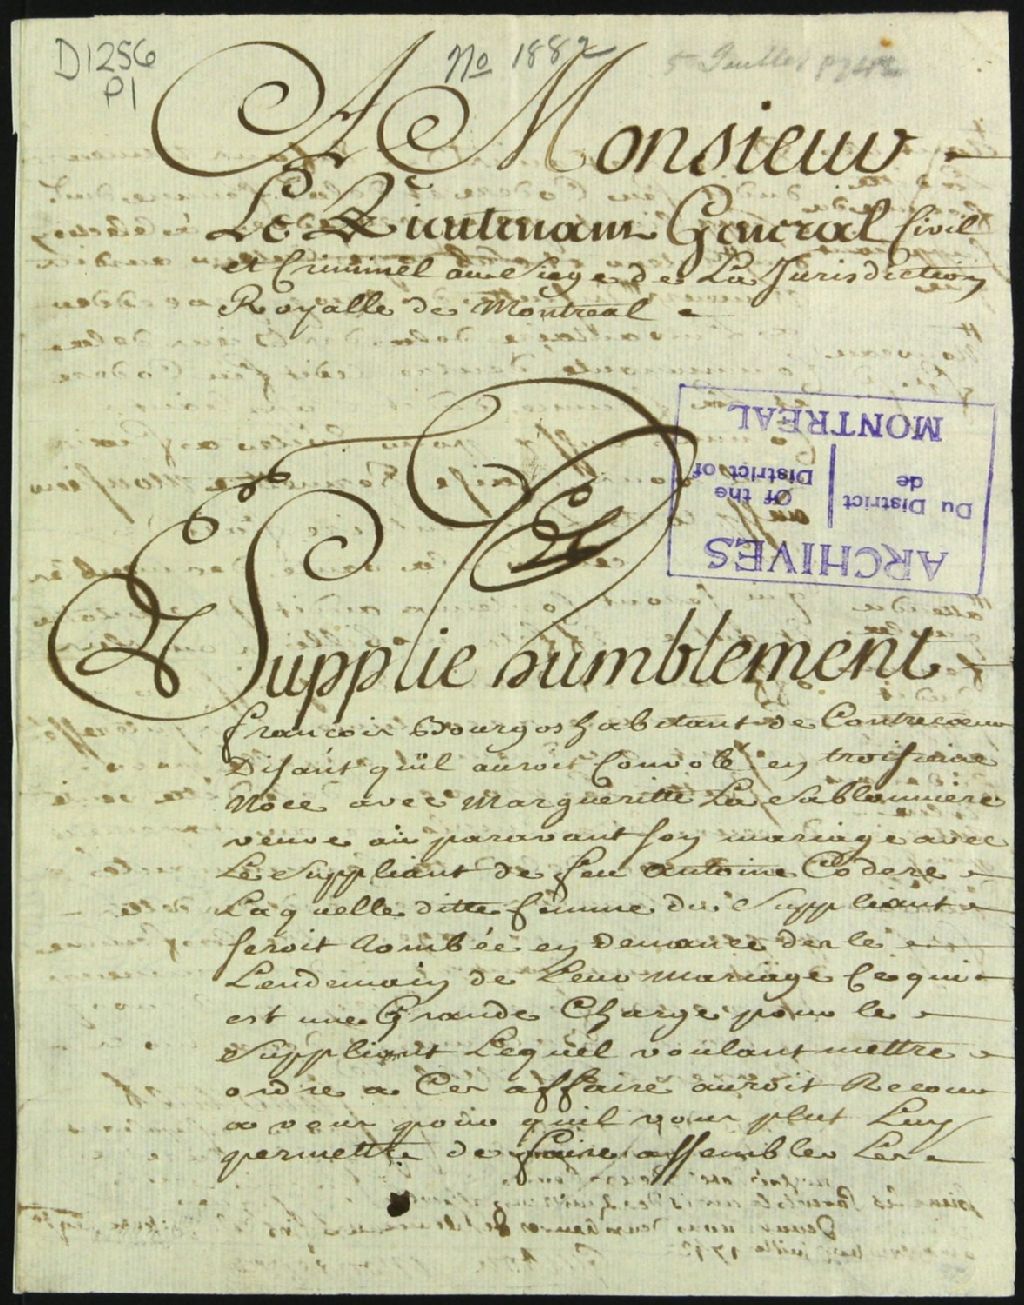 D1256
P1
No 1882
5 Juillet
A Monsieur
Le Lieutenant General Civil
et Criminel au Siege de La Jurisdiction
Royalle de Montreal
ARCHIVES
Du District
de
Of the
District of
MONTREAL
Supplie humblement
francois Bourgos habitant de Contrecoeur
Disant quil auroit Convolé en troisieme
Noce avec Margueritte La Sablonniere
veuve au paravant son mariage avec
Le Suppliant de feu antoine Codere
Laquelle ditte femme du Suppliant
seroit tombée en demance des le
Lendemain de Leur mariage Ce qui
est une Grande Charge pour le
Suppliant Lequel voulant mettre
ordre a Ces affaire auroit Recour
a vous pour quil vous plut Luy
permettre de faire assembler Les